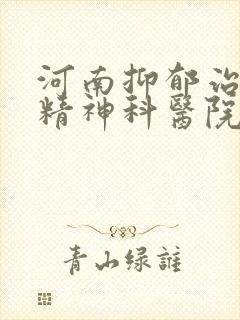 河南抑郁治
精神科醫院
青山绿誰